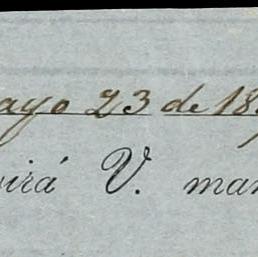 ayo 23 de 18
virá V. man